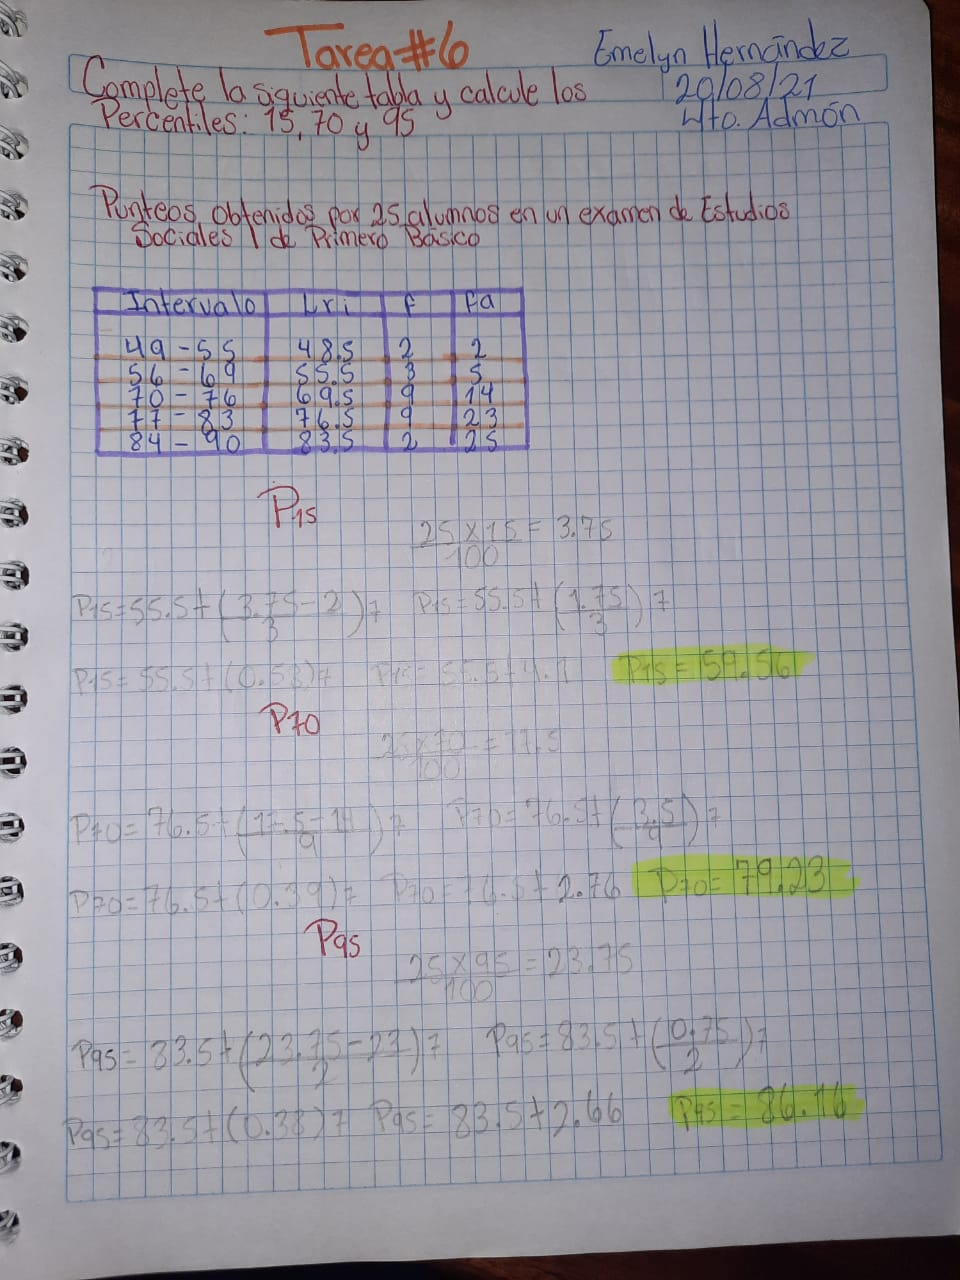 Tarea #6
Emelyn Hernández
Complete la siguiente tabla y calcule los
20/08/21
Percentiles: 15, 70 y 95
4to. Admón
Punteos obtenidos por 25 alumnos en un examen de Estudios
Sociales 1 de Primero Básico
Intervalo Lri f fa
49 - 55 48.5 2 2
56 - 69 55.5 3 5
70 - 76 69.5 9 14
77 - 83 76.5 9 23
84 - 90 83.5 2 25
P15
25 x 15 = 3.75
100
P15 = 55.5 + (3.75 - 2 / 3) 7 P15 = 55.5 + (1.75 / 3) 7
P15 = 55.5 + (0.58) 7 P15 = 55.5 + 4.1 P15 = 59.56
P70
25 x 70 = 17.5
100
P70 = 76.5 + (17.5 - 14 / 9) 7 P70 = 76.5 + (3.5 / 9) 7
P70 = 76.5 + (0.39) 7 P70 = 76.5 + 2.76 P70 = 79.23
P95
25 x 95 = 23.75
100
P95 = 83.5 + (23.75 - 23 / 2) 7 P95 = 83.5 + (0.75 / 2) 7
P95 = 83.5 + (0.38) 7 P95 = 83.5 + 2.66 P95 = 86.16